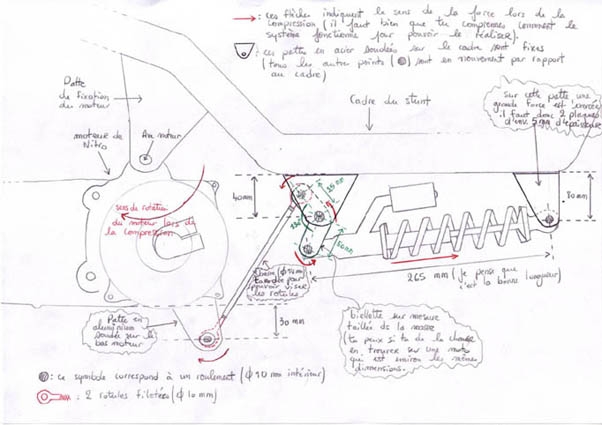 : ces flèches indiquent le sens de la force lors de la
compression (il faut bien que tu comprenne comment le
système fonctionne pour pouvoir le réaliser).
: ces patte en acier soudées sur le cadre sont fixes
(tous les autre points ( ) sont en mouvement par rapport
au cadre)
Patte
de fixation
du moteur
Sur cette patte une
grande force est exercée
il faut donc 2 plaques
d'env. 5mm d'épaisseur
Cadre du stunt
moteur de
Nitro
Axe moteur
40mm
25mm
80mm
sens de rotation
du moteur lors de
la compression
50mm
265 mm (je pense que
c'est la bonne longueur)
pouvoir visser
les rotules
30 mm
Patte en
aluminium
soudée sur le
bas moteur
biellette sur mesure
taillée ds la masse
(tu peux si tu as de la chance
en trouver sur une moto
qui est environ les mêmes
dimensions.
: ce symbole correspond à un roulement (ϕ 10 mm intérieur)
: 2 rotules filetées (ϕ 10 mm)